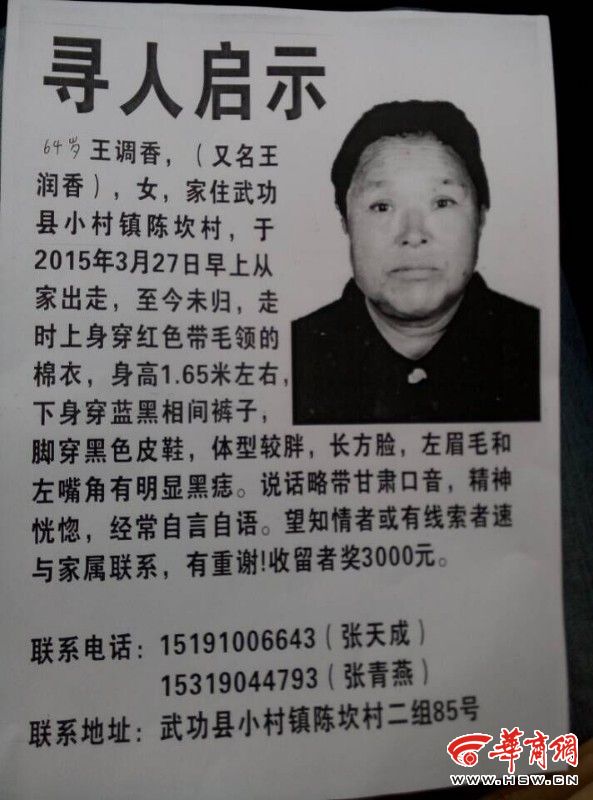 寻人启示
64岁 王调香，（又名王
润香），女，家住武功
县小村镇陈坎村，于
2015年3月27日早上从
家出走，至今未归，走
时上身穿红色带毛领的
棉衣，身高1.65米左右，
下身穿蓝黑相间裤子，
脚穿黑色皮鞋，体型较胖，长方脸，左眉毛和
左嘴角有明显黑痣。说话略带甘肃口音，精神
恍惚，经常自言自语。望知情者或有线索者速
与家属联系，有重谢!收留者奖3000元。
联系电话：15191006643（张天成）
15319044793（张青燕）
联系地址：武功县小村镇陈坎村二组85号
华商网
WWW.HSW.CN